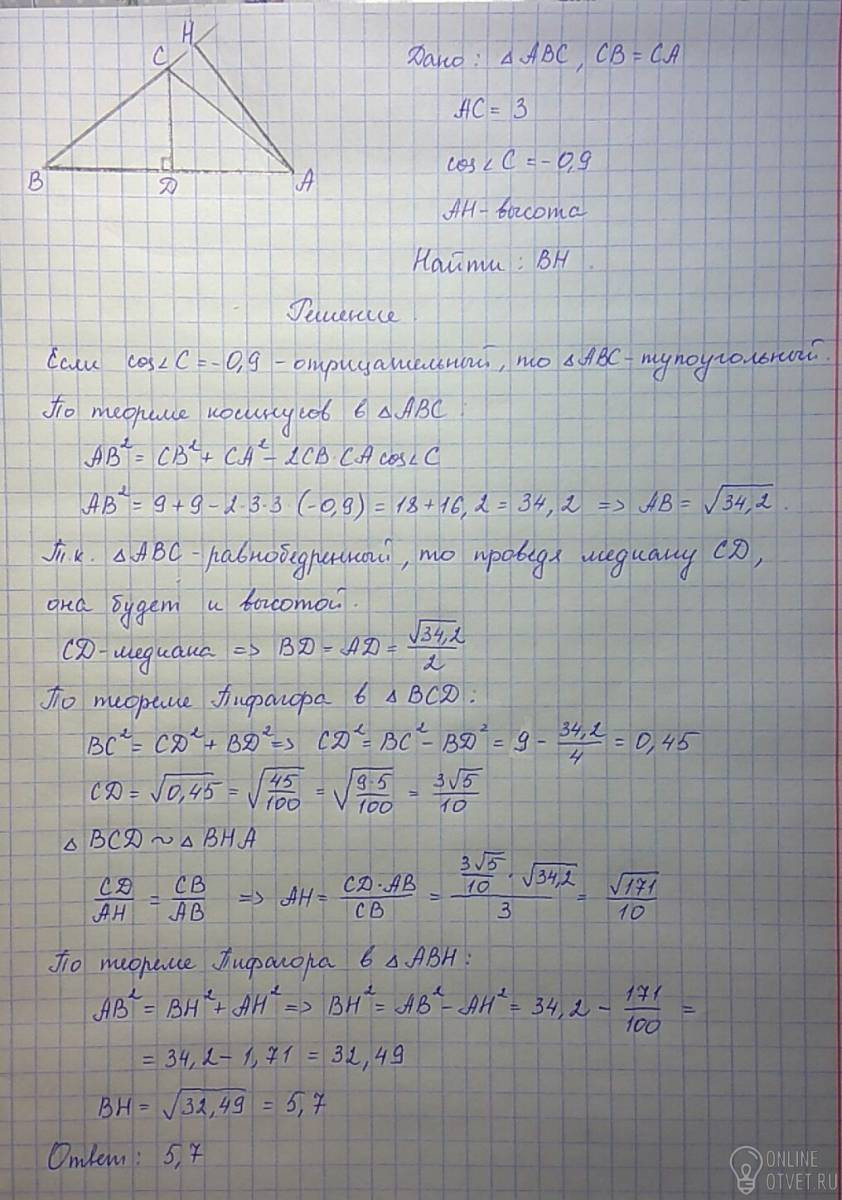 H
C
B
D
A
Дано: △ABC, CB = CA
AC = 3
cos∠C = -0,9
AH - высота
Найти: BH.
Решение.
Если cos∠C = -0,9 - отрицательный, то △ABC - тупоугольный.
По теореме косинусов в △ABC:
AB² = CB² + CA² - 2CB·CA cos∠C
AB² = 9 + 9 - 2·3·3·(-0,9) = 18 + 16,2 = 34,2 => AB = √34,2.
Т.к. △ABC - равнобедренный, то проведя медиану CD,
она будет и высотой.
CD - медиана => BD = AD = √34,2/2
По теореме Пифагора в △BCD:
BC² = CD² + BD² => CD² = BC² - BD² = 9 - 34,2/4 = 0,45
CD = √0,45 = √(45/100) = √(9·5/100) = 3√5/10
△BCD ~ △BHA
CD/AH = CB/AB => AH = CD·AB/CB = (3√5/10 · √34,2)/3 = √171/10
По теореме Пифагора в △ABH:
AB² = BH² + AH² => BH² = AB² - AH² = 34,2 - 171/100 =
= 34,2 - 1,71 = 32,49
BH = √32,49 = 5,7
Ответ: 5,7
ONLINE
OTVET.RU